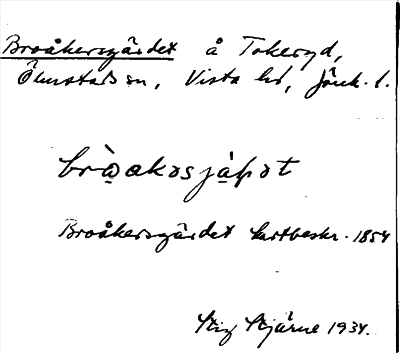 Broåkersgärdet å Tokeryd,
Ölmstads sn, Vista hd, Jönk. l.
Broåkersgärdet kartbeskr. 1854
Stig Stjärne 1934.